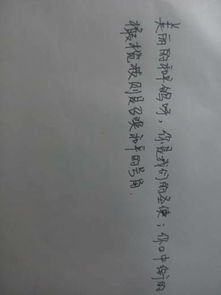 美丽的和平鸽呀，你是我们的圣使；你口中衔的
橄榄枝则是召唤和平的号角．